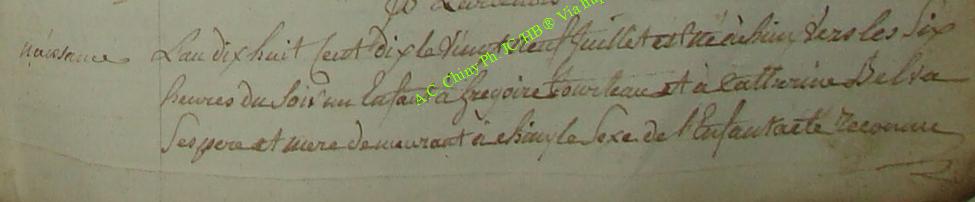 naissance L'an dix huit Cent dix le Vingt neuf Juillet est né à chiny Vers les Six
heures du Soir un Enfant à Gregoire tourteau et à Catherine Delva
Ses pere et mere demeurant à chiny le Sexe de l'Enfant a eté reconnu
A.C. Chiny Ph. JC.HB® Via